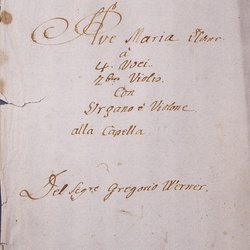 Ave Maria
à
4. Voci.
2bus Violis.
Con
Organo è Violone
alla Capella
Del Sigre Gregorio Werner.